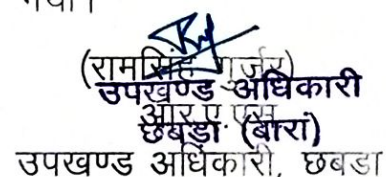 गया।
(रामसिंह गुर्जर)
उपखण्ड अधिकारी
आर.ए.एस
छबड़ा (बारां)
उपखण्ड अधिकारी, छबडा